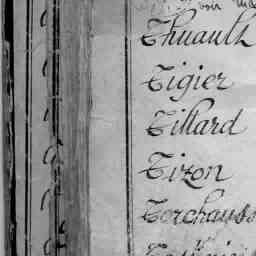 voir
Thuault
Tigier
Tillard
Tizon
Torchauss